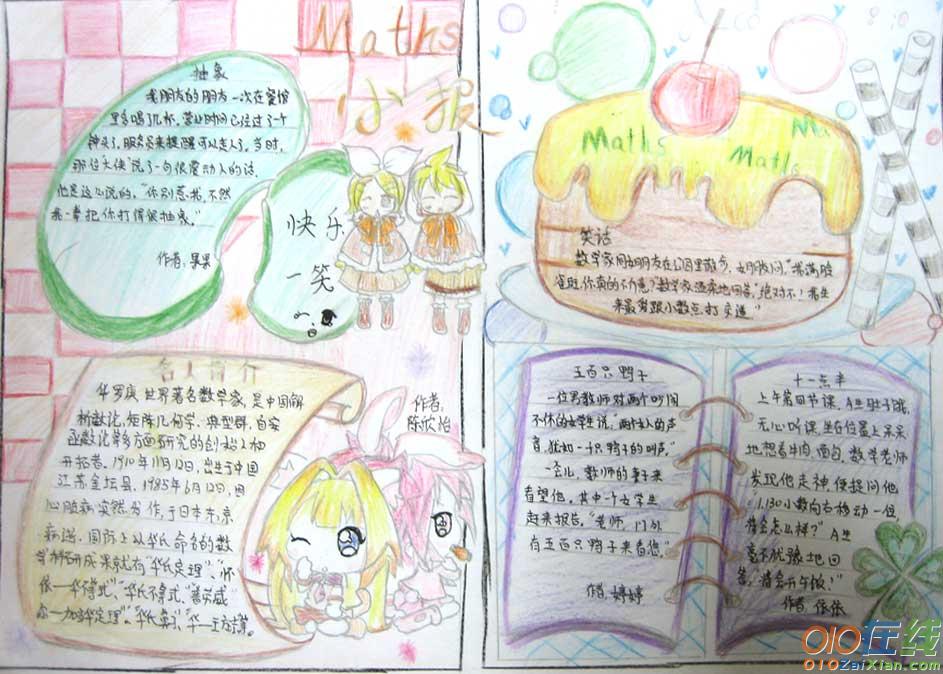 Maths
小报
抽象
我朋友的朋友一次在餐馆
里多喝了几杯，营业时间已经过了一个
钟头了，服务员来提醒可以走人了。当时，
那位大侠说了一句很震动人的话，
他是这么说的，“你别惹我，不然
我一拳把你打得很抽象。”
作者：果果
快乐
一笑
名人简介
华罗庚 世界著名数学家，是中国解
析数论，矩阵几何学、典型群，自安
函数论等多方面研究的创始人和
开拓者，1910年11月12日，出生于中国
江苏金坛县，1985年6月12日，因
心脏病突然发作，于日本东京
病逝。国际上以华氏命名的数
学科研成果就有“华氏定理”、“怀
依一华不等式”、“华氏不等式”、“普劳威
尔一加当华定理”、“华氏算子”、“华—王方法”。
作者：
陈欣怡
Maths
Ma
Maths
笑话
数学家同女朋友在公园里散步，女朋友问，“我满脸
雀斑，你真的不介意？数学家温柔地回答，“绝对不！我生
来最爱跟小数点打交道”
五百只鸭子
一位男教师对两个吵闹
不休的女学生说，“两个女人的声
音，犹如一只鸭子的叫声”
一会儿，教师的妻子来
看望他，其中一个女学生
赶来报告，“老师，门外
有五百只鸭子来看您。”
作者：婷婷
十一点半
上午第四节课，A生肚子饿，
无心听课，坐在位置上呆呆
地想着牛肉面包，数学老师
发现他走神，便提问他
“1.130小数向右移动一位，
将会怎么样？”A生
毫不犹豫地回
答，“将会开午饭！”
作者 依依
010在线
010ZaiXian.com